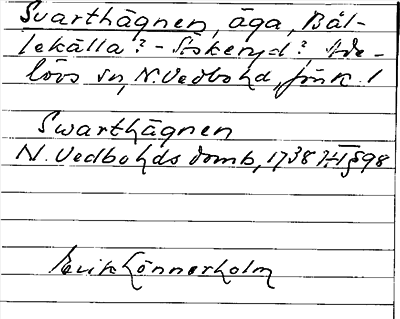 Svarthägnen, äga, Bäl-
lekälla? - Stskenyd? Ade-
lövs sn, N. Vedbo hd, Jönk. l
Swarthägnen
N. Vedbo hds domb, 1738 HT § 98
Erik Lönnerholm